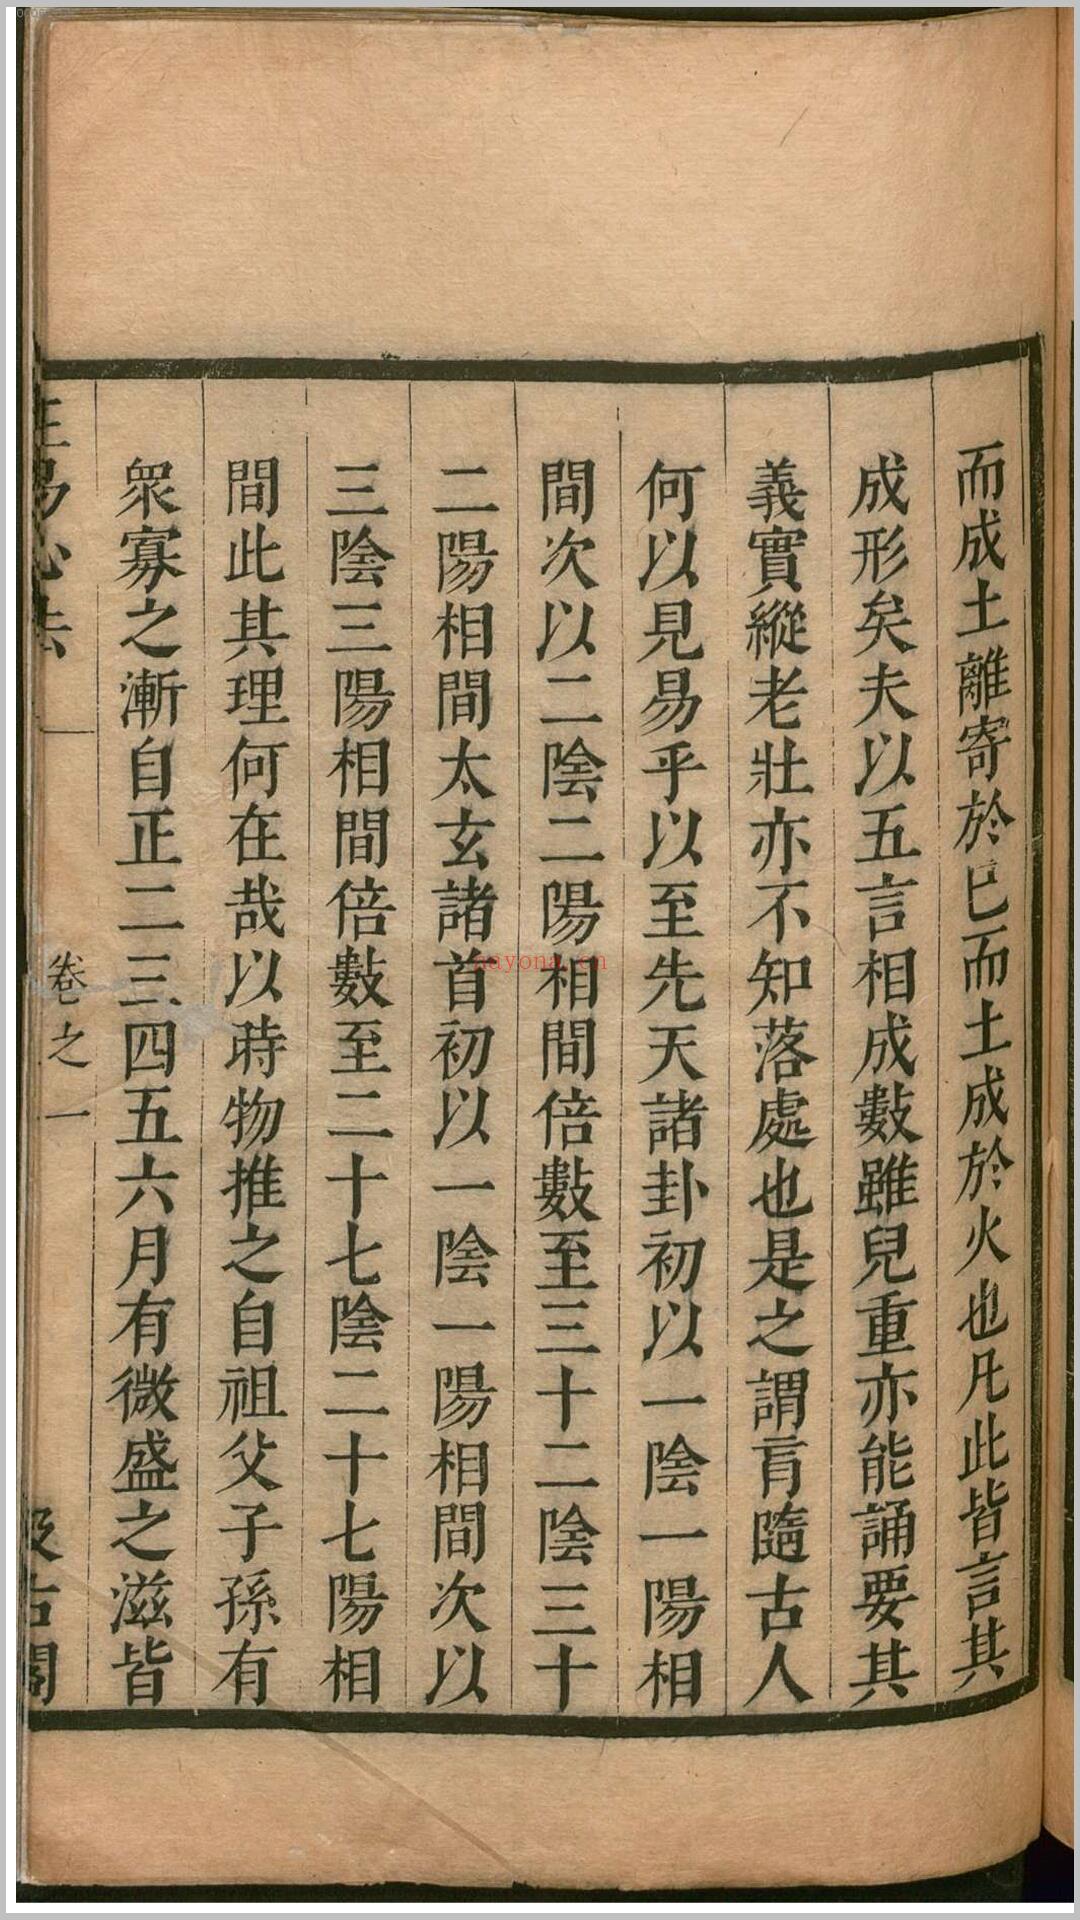 而成土離寄於巳而土成於火也凡此皆言其
成形矣夫以五言相成數雖兒重亦能誦要其
義實縱老壯亦不知落處也是之謂盲隨古人
何以見易乎以至先天諸卦初以一陰一陽相
間次以二陰二陽相間倍數至三十二陰三十
二陽相間太玄諸首初以一陰一陽相間次以
三陰三陽相間倍數至二十七陰二十七陽相
間此其理何在哉以時物推之自祖父子孫有
眾寡之漸自正二三四五六月有微盛之滋皆
正易心法
卷之一
汲古閣
nayona.cn